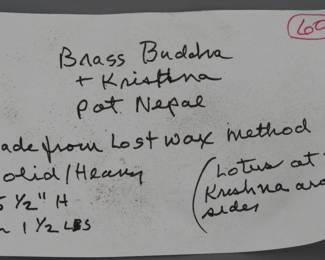 60
Brass Buddha
+ Krishna
pot Nepal
ade from Lost wax method
olid/Heavy
5 1/2" H
1 1/2 LBS
(Lotus at
Krishna and
sides